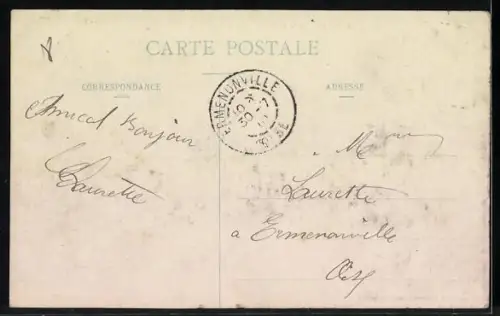 CARTE POSTALE
CORRESPONDANCE
ADRESSE
ERMENONVILLE
OISE
Amical Bonjour
Laurette
M
Laurette
a Ermenonville
Oise